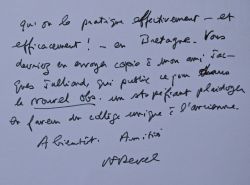 qui on la pratique effectivement – et
efficacement! – en Bretagne. Vous
devriez en envoyer copie à mon ami Jac-
ques Julliard, qui publie ce jour dans
le nouvel obs. un stupéfiant plaidoyer
en faveur du collège unique à l'ancienne.
A bientôt. Amitiés